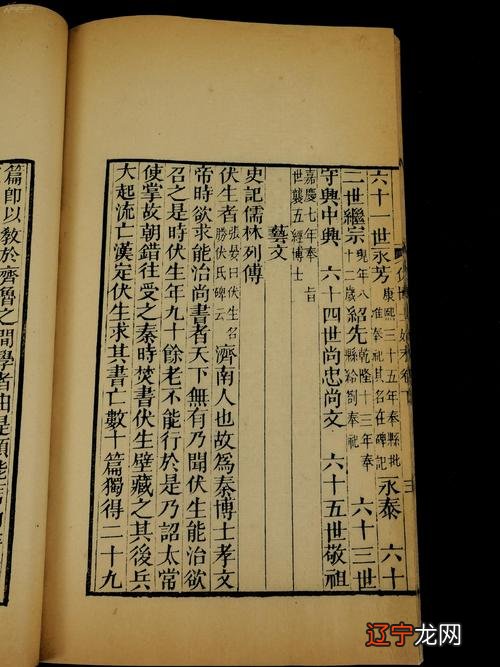 六十一世永芳康熙三十五年奉縣批准奉祀其名在碑記永泰 六十
二世繼宗現年八十二歲紹先乾隆十三年奉縣給劄奉祀 六十三世
守興中興 六十四世尚忠尚文 六十五世敬祖
嘉慶七年奉旨世襲五經博士
藝文
史記儒林列傳
伏生者張晏曰伏生名勝伏氏碑云濟南人也故為秦博士孝文
帝時欲求能治尚書者天下無有乃聞伏生能治欲
召之是時伏生年九十餘老不能行於是乃詔太常
使掌故朝錯往受之秦時焚書伏生壁藏之其後兵
大起流亡漢定伏生求其書亡數十篇獨得二十九
篇即以教於齊魯之間學者由是頗能言
三
辽宁龙网